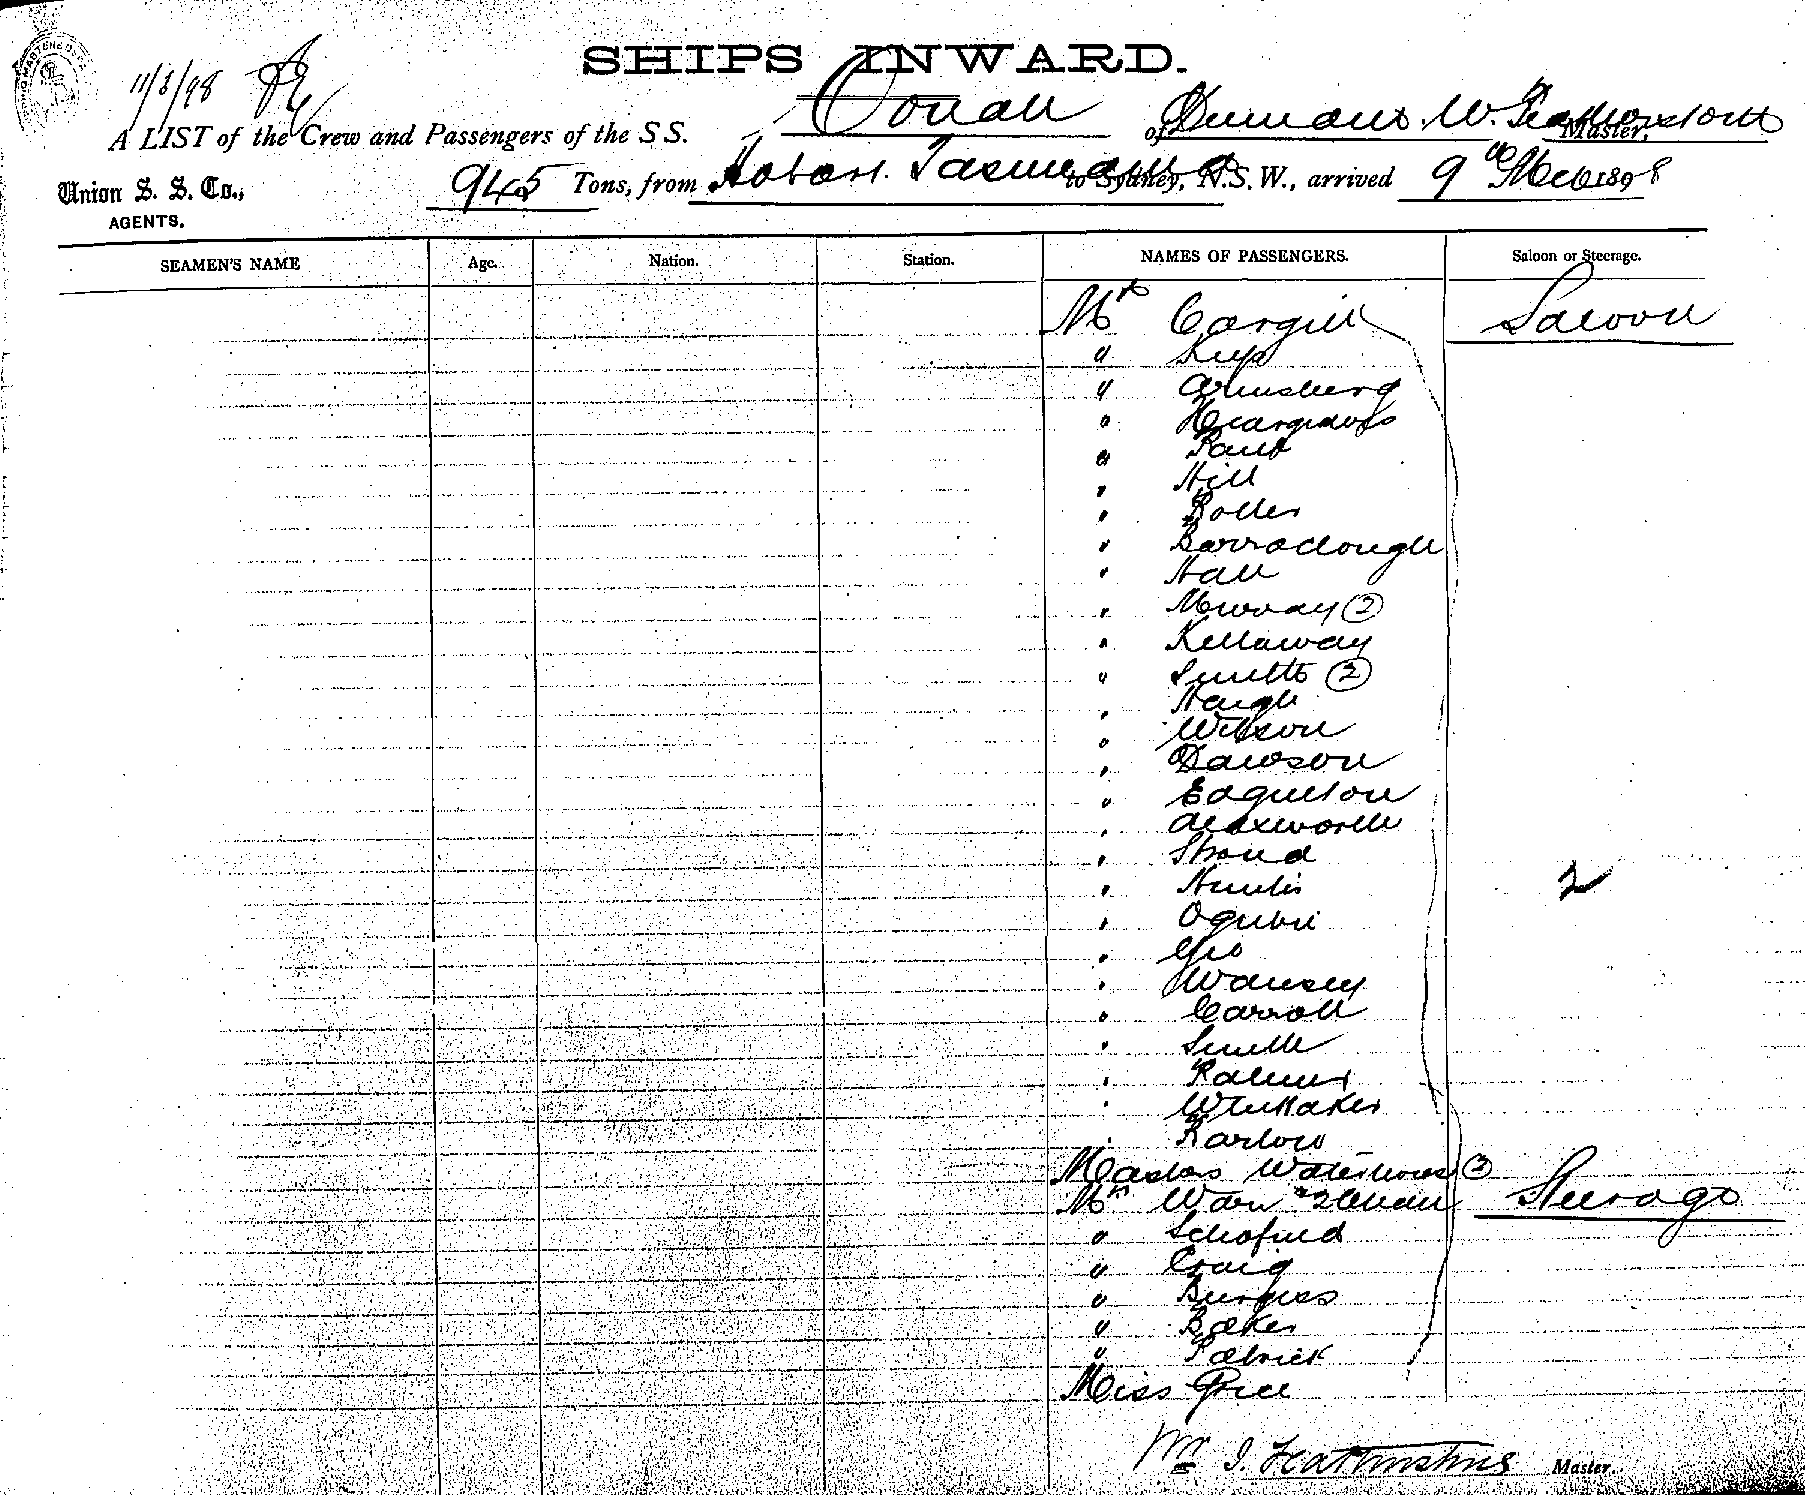 SHIPS INWARD.
11/3/98
A LIST of the Crew and Passengers of the S S. Oonah of Dunedin. W. Featherstone Master,
Union S. S. Co., AGENTS. 945 Tons, from Hobart. Tasmania to Sydney, N.S.W., arrived 9th Mch 1898
SEAMEN'S NAME Age. Nation. Station. NAMES OF PASSENGERS. Saloon or Steerage.
Mr Cargill Saloon
" 
" 
" Heargraves
" 
" Hill
" 
" Barraclough
" Hall
" Murray 2
" Kellaway
" Smith 2
" Haigh
" Wilson
" Dawson
" Edgerton
" 
" Stroud
" 2
" Ogilvie
" Geo
" Wansey
" Carroll
" Smith
" Palmer
" Whittaker
" 
Masters Waterhouse
Mr Steerage
" Schofield
" Craig
" Burgess
" Baker
" Patrick
Miss Price
Wm J. Featherstone Master.